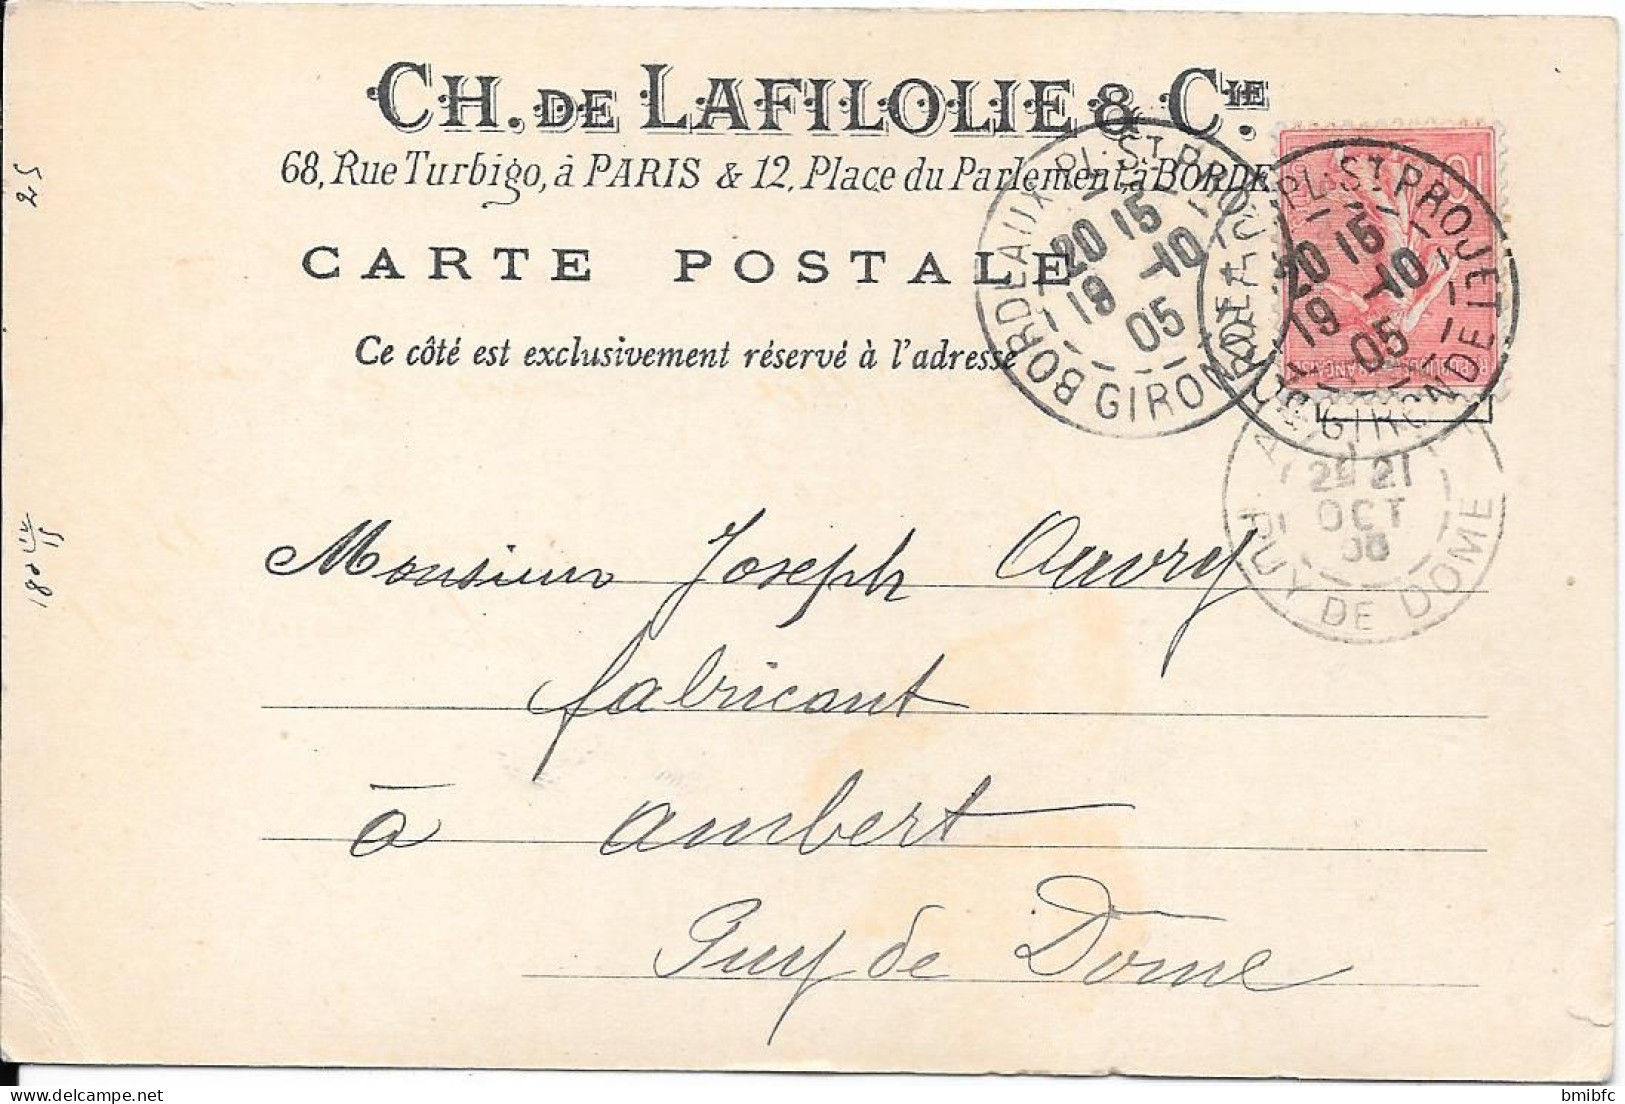 CH. DE LAFILOLIE & CIE.
68, Rue Turbigo, à PARIS & 12, Place du Parlement, à BORDE
CARTE POSTALE
Ce côté est exclusivement réservé à l'adresse
BORDEAUX-PL. ST PROJET
20 15
19 -10
05
GIRONDE
BORDEAUX-PL. ST PROJET
20 15
19 -10
05
GIRONDE
10
21
OCT
PUY DE DOME
25
Monsieur Joseph Ouvry
fabricant
à Ambert
Puy de Dôme
bmibfc